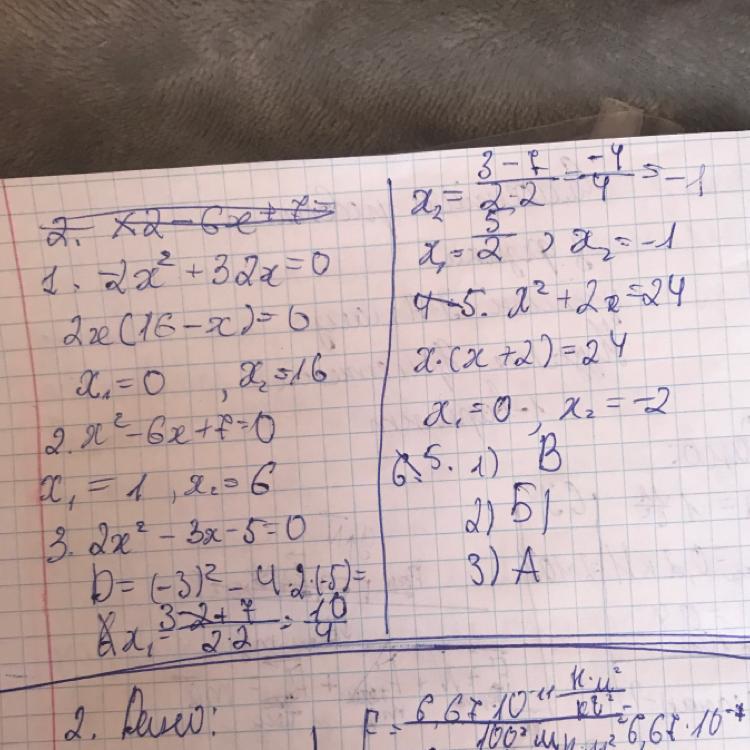 2. x2 - 6x + 7 =
1. -2x² + 32x = 0
2x(16 - x) = 0
x₁ = 0 , x₂ = 16
2. x² - 6x + 7 = 0
x₁ = 1 , x₂ = 6
3. 2x² - 3x - 5 = 0
D = (-3)² - 4·2·(-5) =
x₁ = 3-2+7/2·2 = 10/4
x₂ = 3-7/2·2 = -4/4 = -1
x₁ = 5/2 , x₂ = -1
4 5. x² + 2x = 24
x·(x + 2) = 24
x₁ = 0 , x₂ = -2
6. 5. 1) В
2) Б
3) А
2. Дано:
F = 6,67·10⁻¹¹ Н·м²/кг²
100²
6,67·10⁻⁷